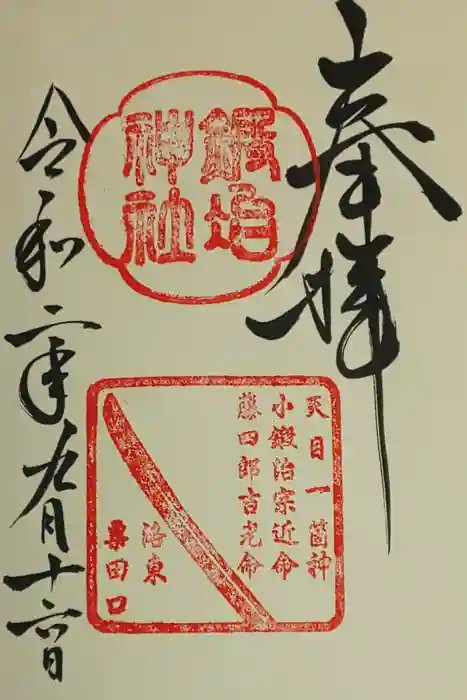 奉拝
鍛冶
神社
天目一箇神
小鍛治宗近命
藤四郎吉光命
洛東
粟田口
令和二年九月十六日